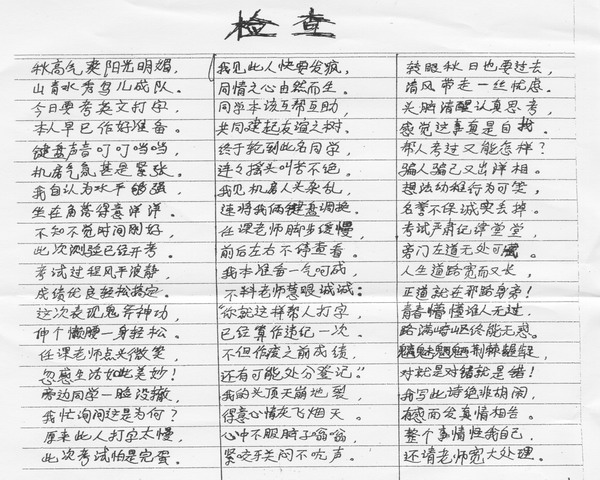 检查
秋高气爽阳光明媚，
山青水秀鸟儿成队。
今日要考英文打字，
本人早已作好准备。
键盘声音叮叮当当，
机房气氛甚是紧张。
我自认为水平够强，
坐在角落得意洋洋。
不知不觉时间刚好，
此次测验已经开考。
考试过程风平浪静，
成绩优良轻松搞定。
这次表现鬼斧神功，
伸个懒腰一身轻松。
任课老师点头微笑，
忽感生活如此美妙！
旁边同学一脸没辙，
我忙询问这是为何？
原来此人打字太慢，
此次考试怕是完蛋。
我见此人快要发疯，
同情之心由然而生。
同学本该互帮互助，
共同建起友谊之树。
终于轮到此名同学，
连连摇头叫苦不绝。
我见机房人头杂乱，
速将我俩键盘调换。
任课老师脚步缓慢，
前后左右不停查看。
我本准备一气呵成，
不料老师慧眼诚诚：
"你就这样帮人打字，
已经算作违纪一次。
不但作废之前成绩，
还有可能处分登记。"
我的头顶天崩地裂，
得意心情灰飞烟灭。
心中不服脖子嗡嗡，
紧咬牙关闷不吭声。
转眼秋日也要过去，
清风带走一丝忧虑。
头脑清醒认真思考，
感觉这事真是自找。
帮人考过又能怎样？
骗人骗己又出洋相。
想法幼稚行为可笑，
名誉不保诚实丢掉。
考试严肃纪律堂堂，
旁门左道无处可藏。
人生道路宽而又长，
正道就在那路身旁！
青春懵懂谁人无过，
路满崎岖终能无惑。
魑魅魍魉荆棘龌龊，
对就是对错就是错！
我写此诗绝非胡闹，
有感而发真情相告。
整个事情怪我自己，
还请老师宽大处理。